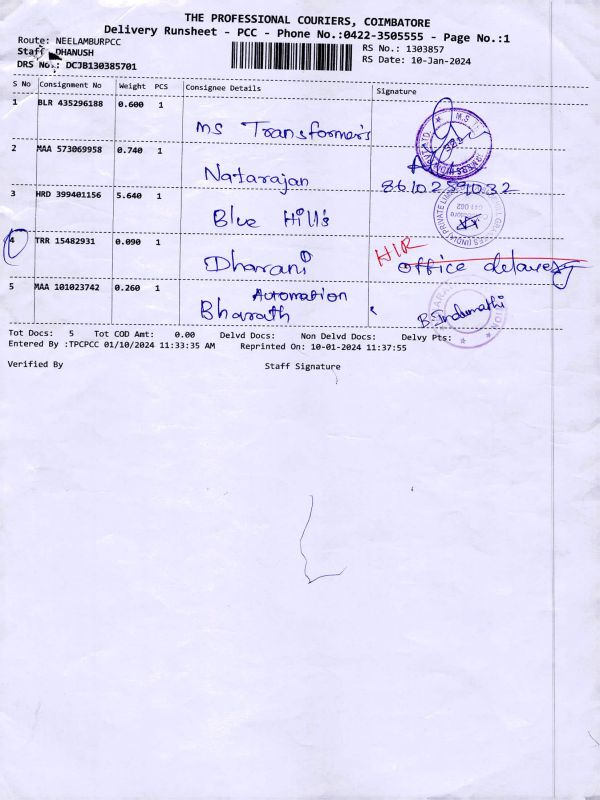 THE PROFESSIONAL COURIERS, COIMBATORE
Delivery Runsheet - PCC - Phone No.:0422-3505555 - Page No.:1
Route: NEELAMBURPCC
RS No.: 1303857
Staff DHANUSH
RS Date: 10-Jan-2024
DRS No.: DCJB130385701
S No Consignment No Weight PCS Consignee Details Signature
1 BLR 435296188 0.600 1
MS Transformers
2 MAA 573069958 0.740 1
Natarajan 8610259032
3 HRD 399401156 5.640 1
Blue Hill's
4 TRR 15482931 0.090 1
Dharani HIR office delavery
5 MAA 101023742 0.260 1
Automation
Bharath B. Indumathi
Tot Docs: 5 Tot COD Amt: 0.00 Delvd Docs: Non Delvd Docs: Delvy Pts:
Entered By :TPCPCC 01/10/2024 11:33:35 AM Reprinted On: 10-01-2024 11:37:55
Verified By Staff Signature